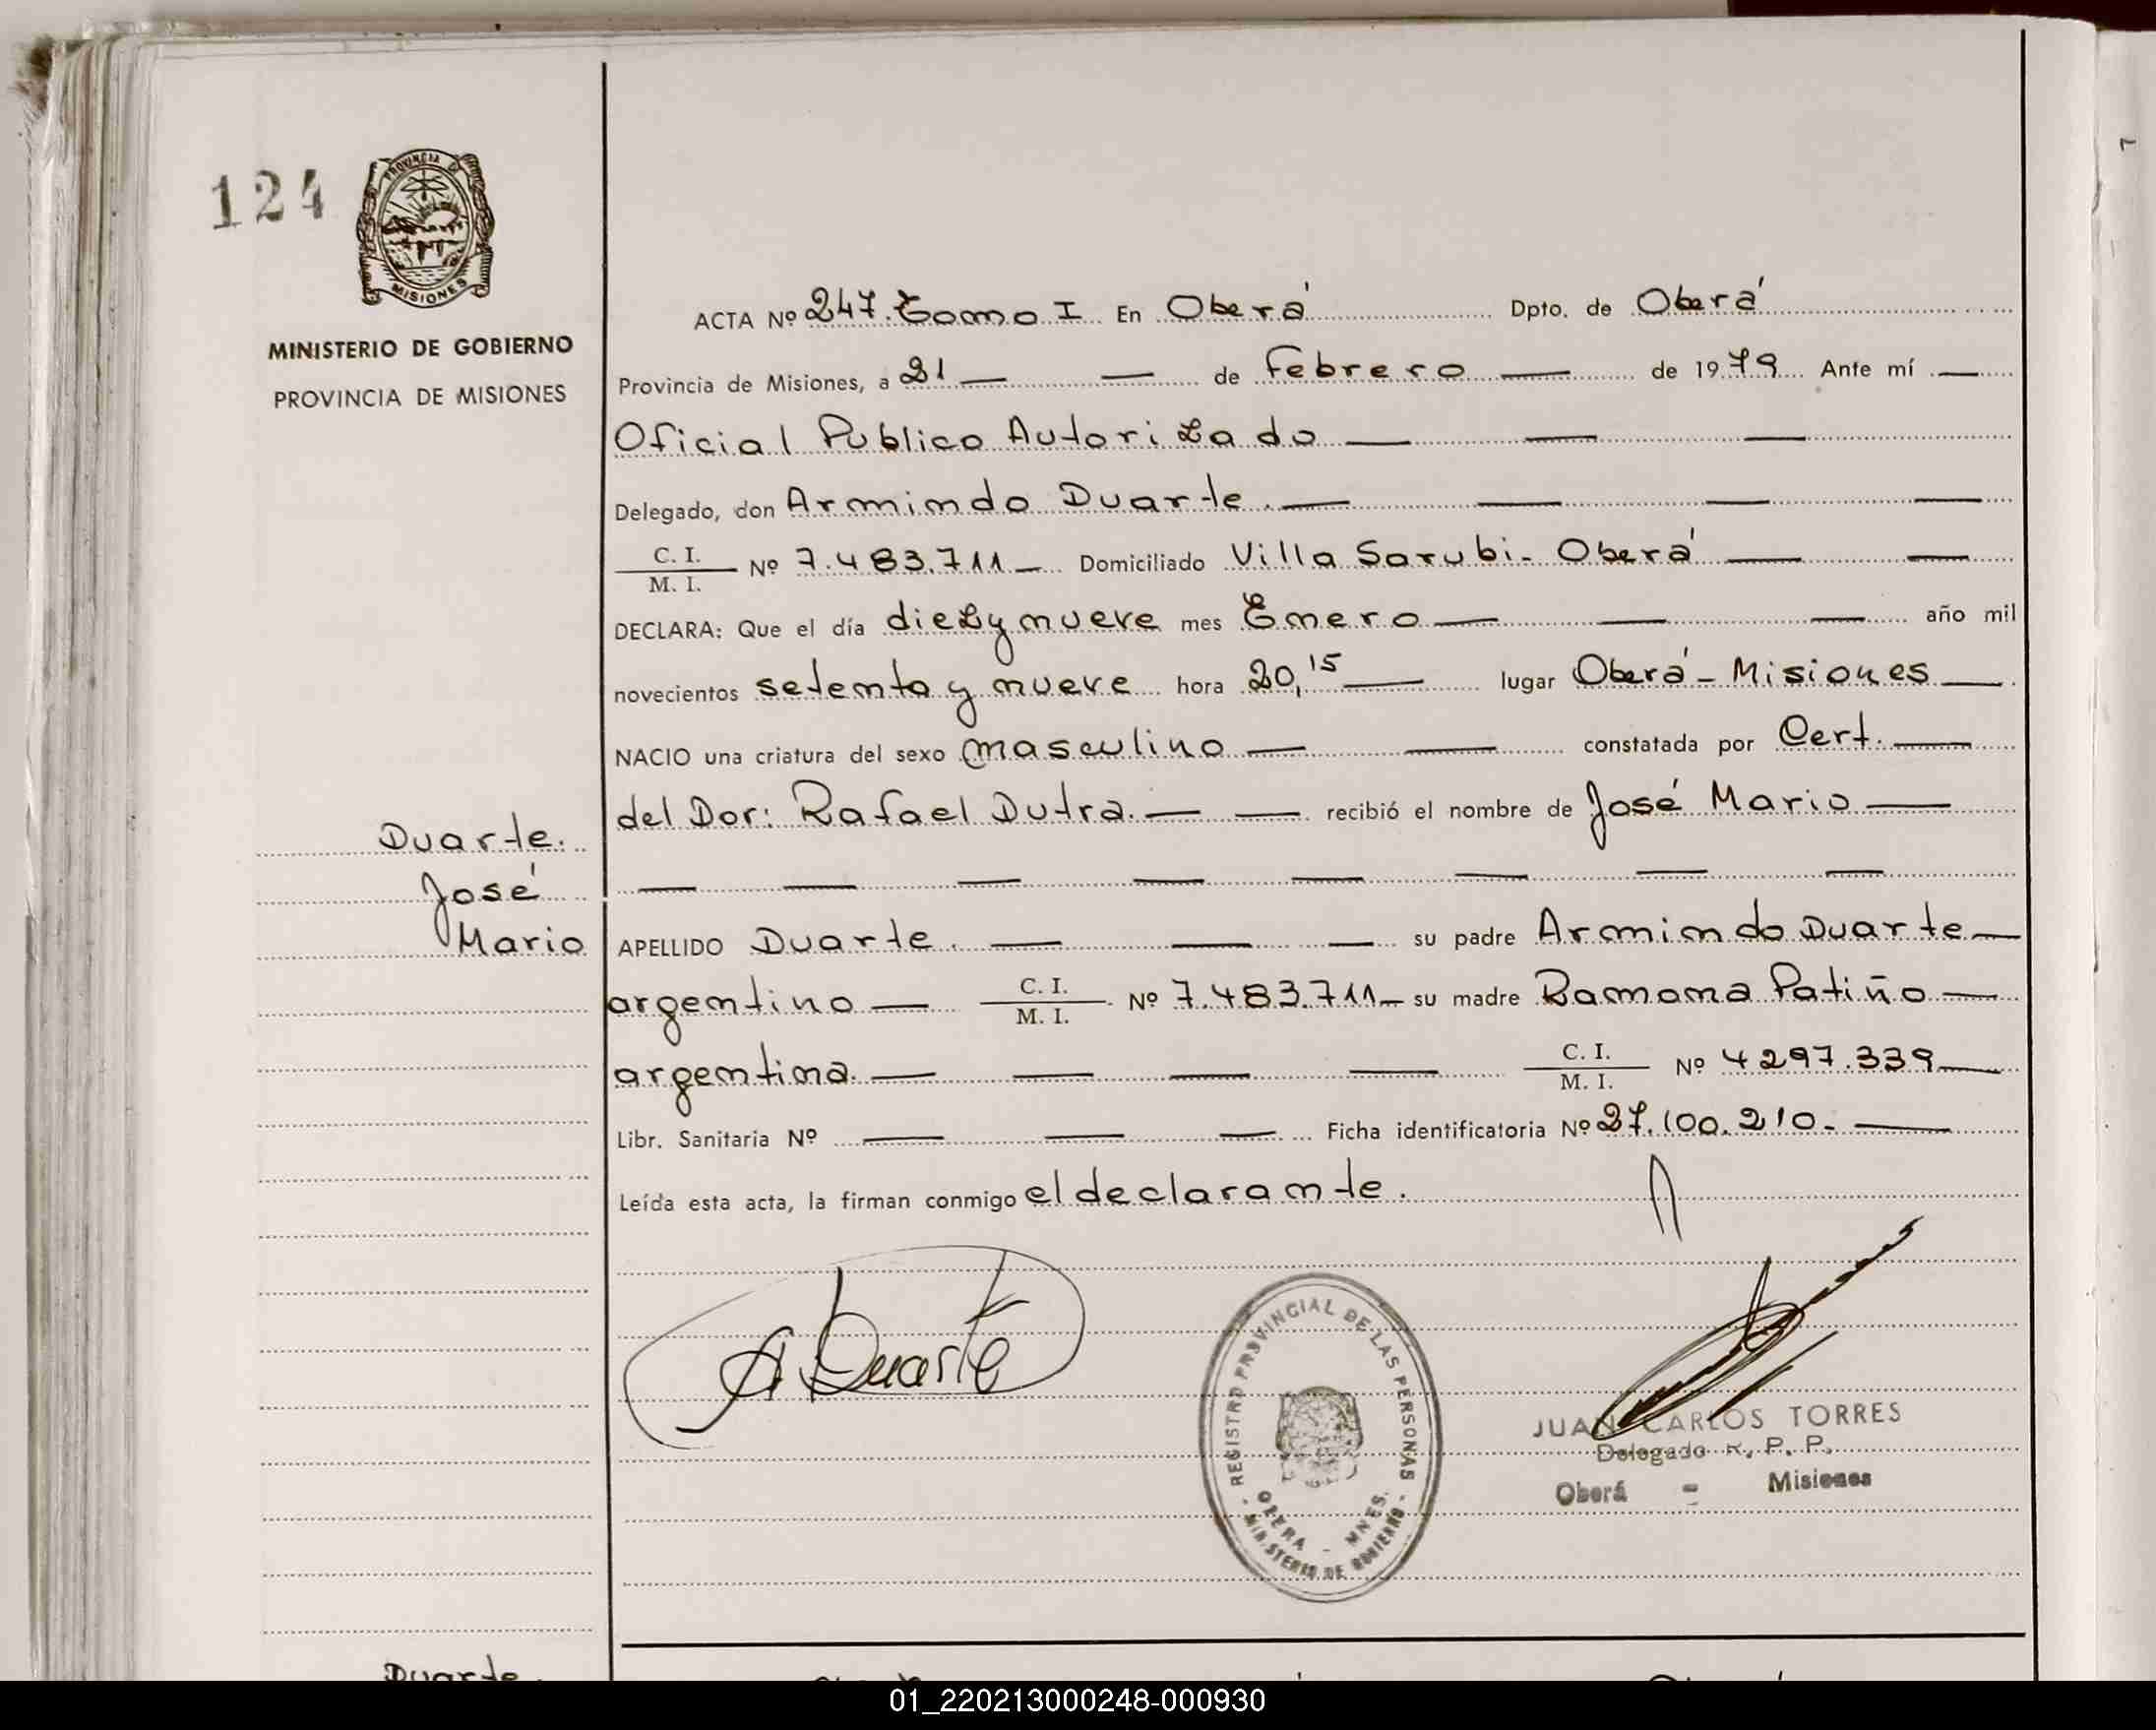 124
PROVINCIA DE
MISIONES
MINISTERIO DE GOBIERNO
PROVINCIA DE MISIONES
ACTA Nº 247. Tomo I En Oberá Dpto. de Oberá
Provincia de Misiones, a 21 de Febrero de 1979 Ante mí
Oficial Publico Autorizado
Delegado, don Armindo Duarte.
C. I.
M. I.
Nº 7.483.711 Domiciliado Villa Sarubi - Oberá
DECLARA: Que el día diezynueve mes Enero año mil
novecientos setenta y nueve hora 20,15 lugar Oberá - Misiones
NACIO una criatura del sexo masculino constatada por Cert.
del Dor: Rafael Dutra. recibió el nombre de José Mario
Duarte.
José
Mario
APELLIDO Duarte. su padre Armindo Duarte
argentino C. I. / M. I. Nº 7.483.711 su madre Ramona Patiño
argentina. C. I. / M. I. Nº 4297.339
Libr. Sanitaria Nº Ficha identificatoria Nº 27.100.210.
Leída esta acta, la firman conmigo el declarante.
A Duarte
REGISTRO PROVINCIAL DE LAS PERSONAS
OBERA - MNES.
MINISTERIO DE GOBIERNO
JUAN CARLOS TORRES
Delegado R. P. P.
Oberá - Misiones
Duarte.
01_220213000248-000930